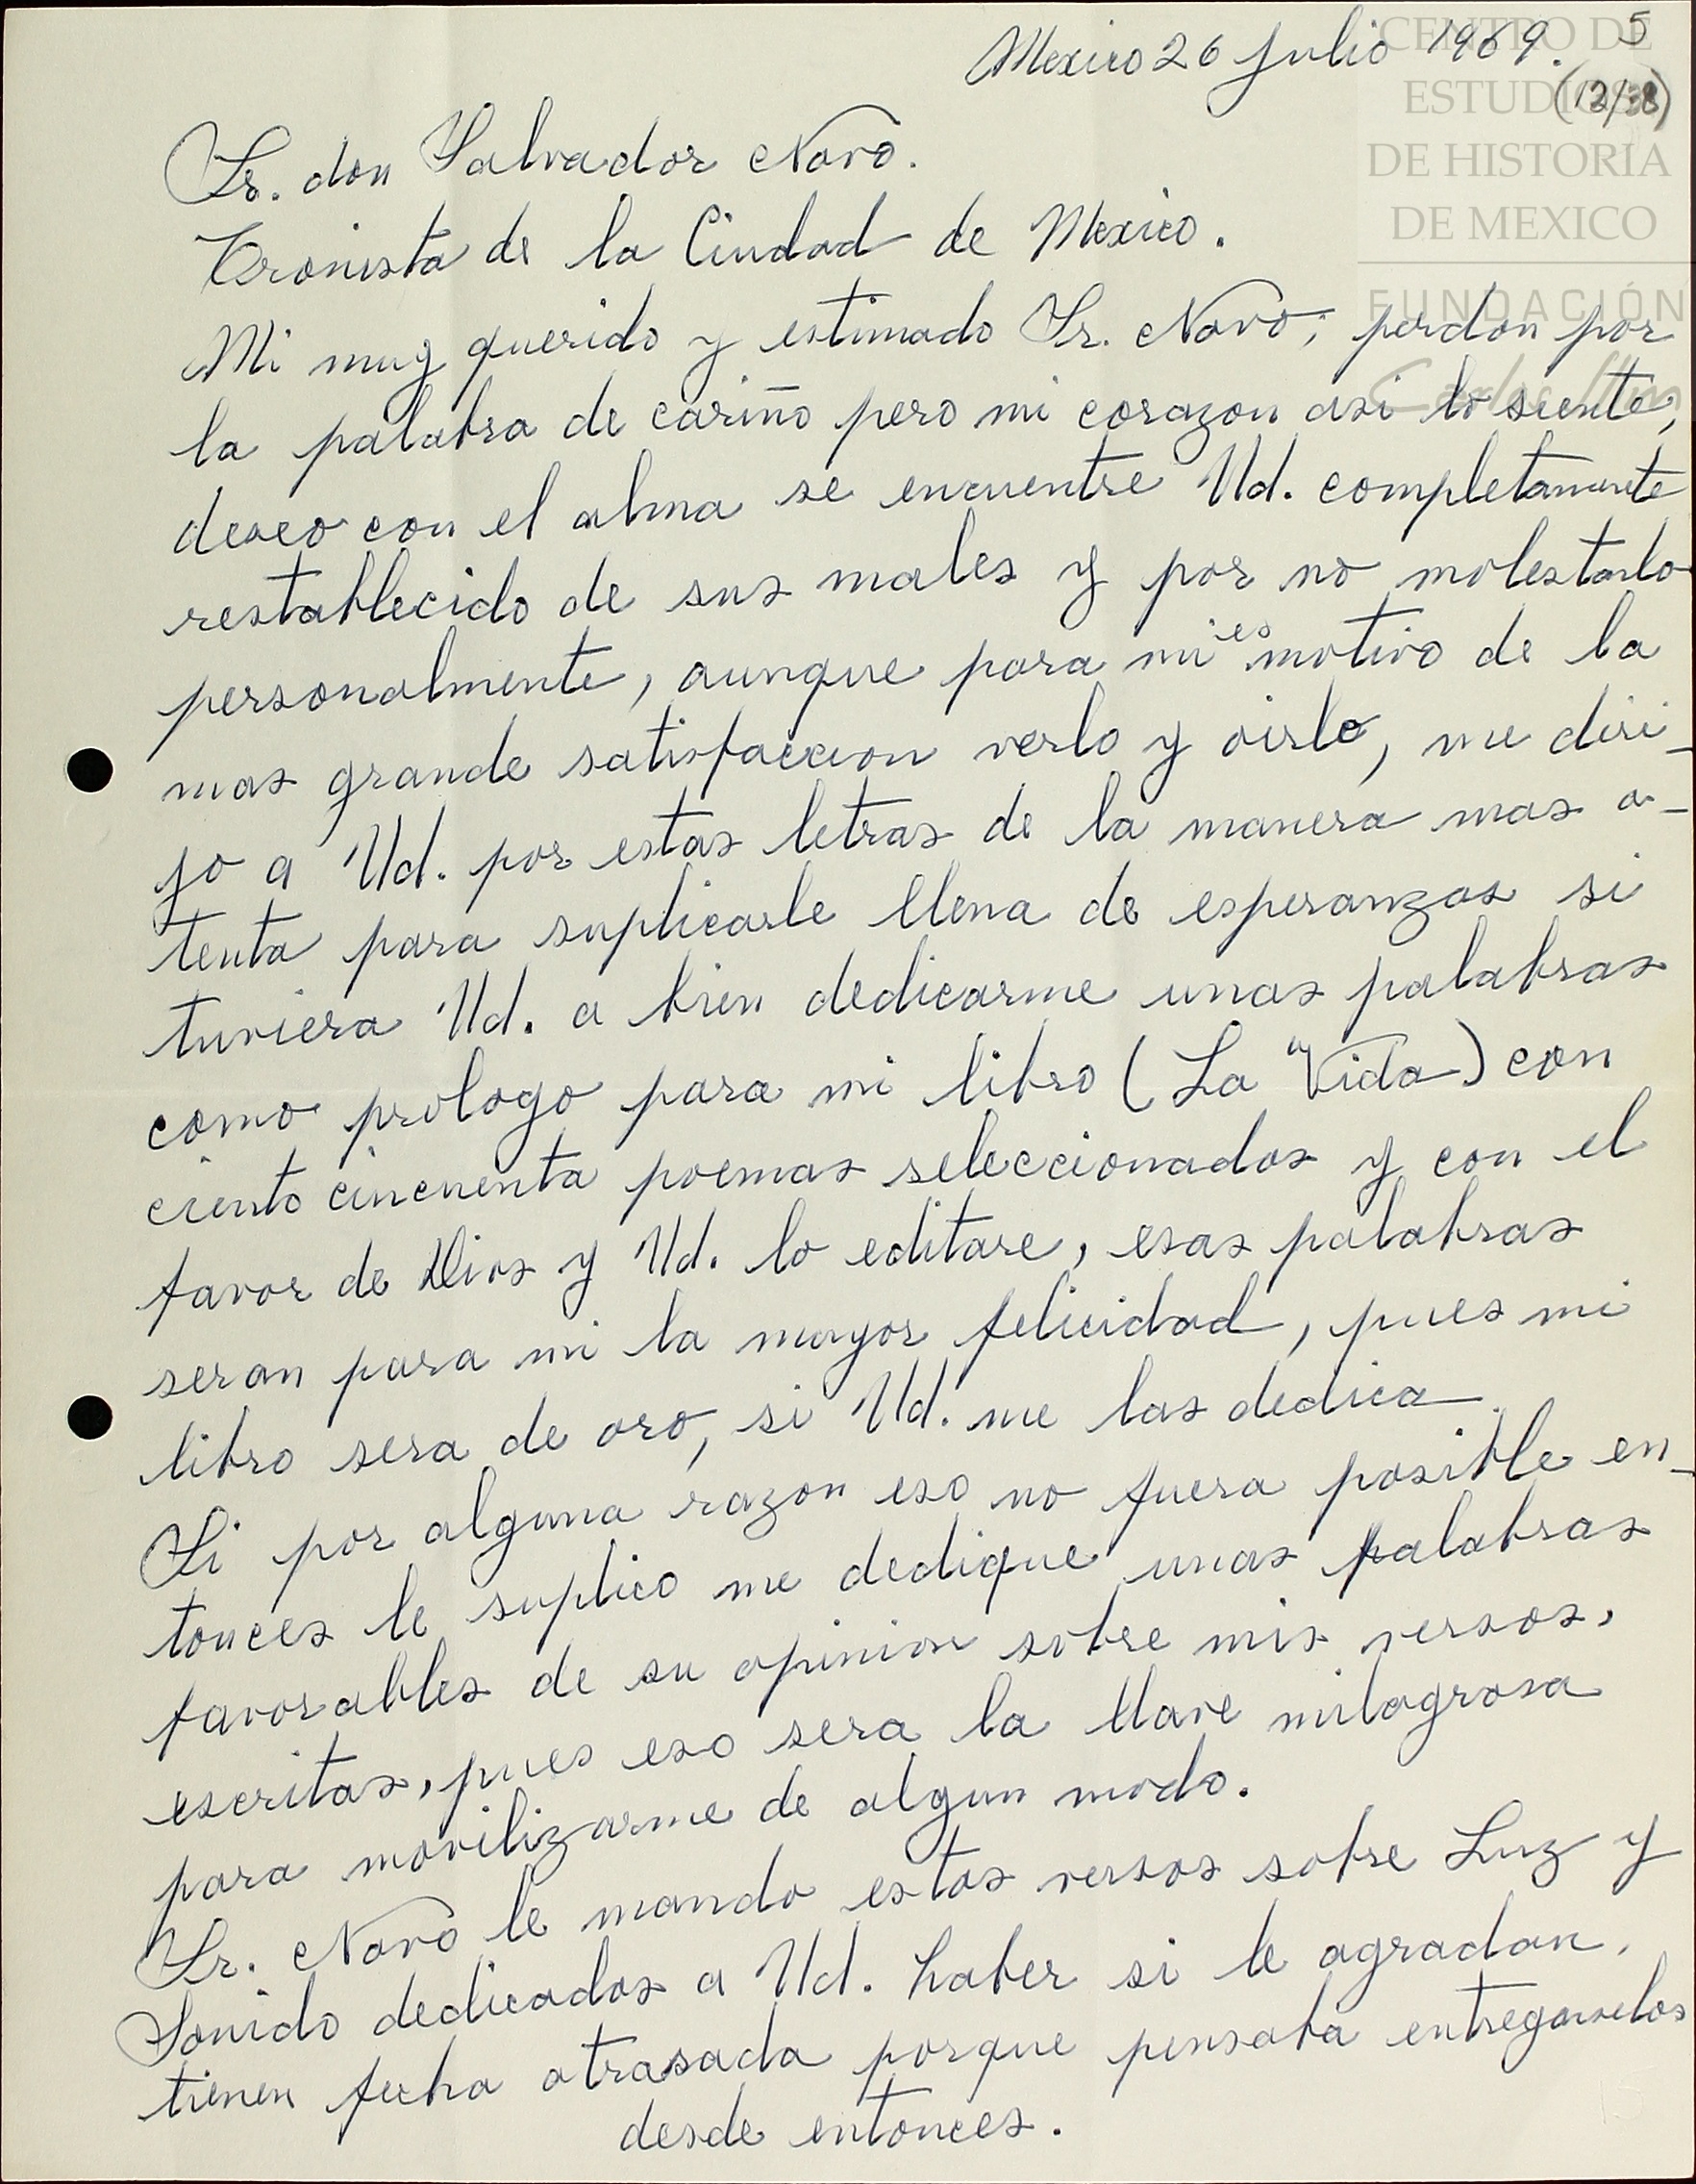 Mexico 26 Julio 1969. 5
(12/38)
CENTRO DE
ESTUDIOS
DE HISTORIA
DE MEXICO
FUNDACIÓN
Carlos Slim
Sr. don Salvador Novo.
Cronista de la Ciudad de Mexico.
Mi muy querido y estimado Sr. Novo; perdon por
la palabra de cariño pero mi corazon asi lo siente,
deseo con el alma se encuentre Ud. completamente
restablecido de sus males y por no molestarlo
personalmente, aunque para mi es motivo de la
mas grande satisfaccion verlo y oirlo, me diri-
jo a Ud. por estas letras de la manera mas a-
tenta para suplicarle llena de esperanzas si
tuviera Ud. a bien dedicarme unas palabras
como prologo para mi libro (La "Vida) con
ciento cincuenta poemas seleccionados y con el
favor de Dios y Ud. lo editare, esas palabras
seran para mi la mayor felicidad, pues mi
libro sera de oro, si Ud. me las dedica.
Si por alguna razon eso no fuera posible en-
tonces le suplico me dedique unas palabras
favorables de su opinion sobre mis versos,
escritas, pues eso sera la llave milagrosa
para movilizarme de algun modo.
Sr. Novo le mando estos versos sobre Luz y
Sonido dedicados a Ud. haber si le agradan.
tienen fecha atrasada porque pensaba entregarselos
desde entonces.